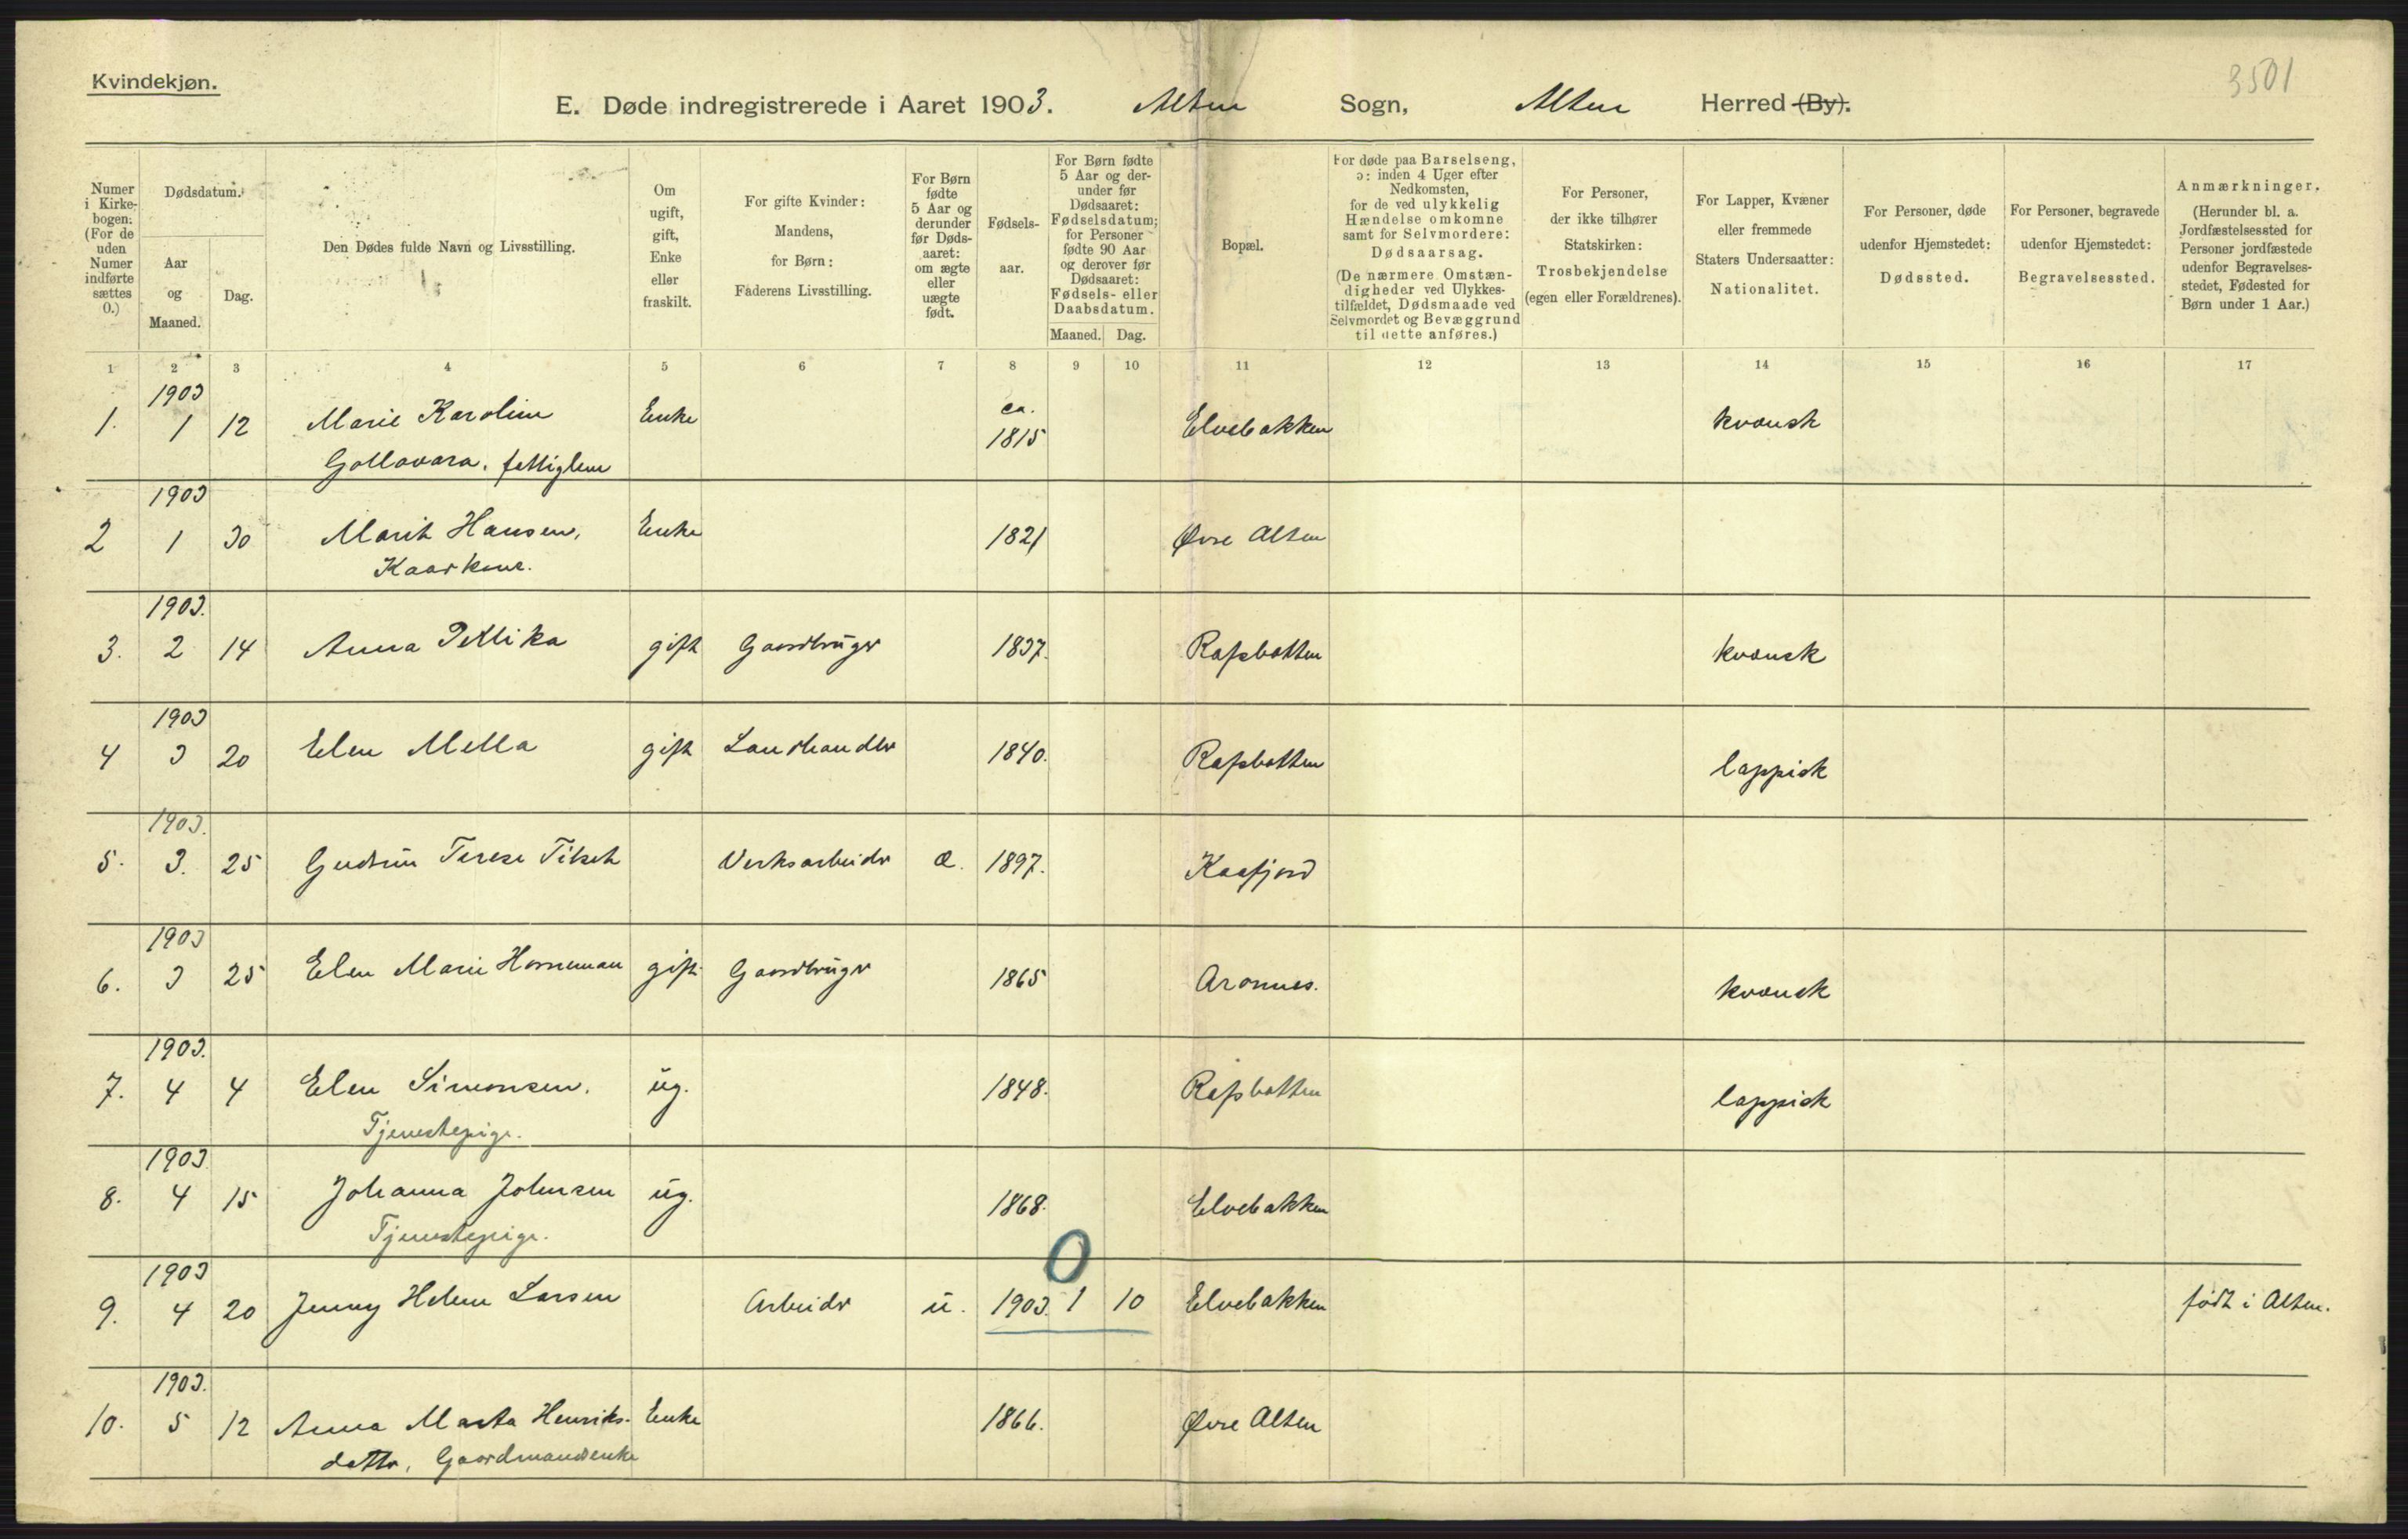 Kvindekjøn.
3501
E. Døde indregistrerede i Aaret 1903. Alten Sogn, Alten Herred (By).
Numer i Kirkebogen. (For de uden Numer indførte sættes 0.)
Dødsdatum.
Aar og Maaned.
Dag.
Den Dødes fulde Navn og Livsstilling.
Om ugift, gift, Enke eller fraskilt.
For gifte Kvinder: Mandens, for Børn: Faderens Livsstilling.
For Børn fødte 5 Aar og derunder før Dødsaaret: om ægte eller uægte født.
Fødselsaar.
For Børn fødte 5 Aar og derunder før Dødsaaret: Fødselsdatum; for Personer fødte 90 Aar og derover før Dødsaaret: Fødsels- eller Daabsdatum.
Maaned. Dag.
Bopæl.
For døde paa Barselseng, ɔ: inden 4 Uger efter Nedkomsten, for de ved ulykkelig Hændelse omkomne samt for Selvmordere: Dødsaarsag. (De nærmere Omstændigheder ved Ulykkestilfældet, Dødsmaade ved Selvmordet og Bevæggrund til dette anføres.)
For Personer, der ikke tilhører Statskirken: Trosbekjendelse (egen eller Forældrenes).
For Lapper, Kvæner eller fremmede Staters Undersaatter: Nationalitet.
For Personer, døde udenfor Hjemstedet: Dødssted.
For Personer, begravede udenfor Hjemstedet: Begravelsessted.
Anmærkninger. (Herunder bl. a. Jordfæstelsessted for Personer jordfæstede udenfor Begravelsesstedet, Fødested for Børn under 1 Aar.)
1 2 3 4 5 6 7 8 9 10 11 12 13 14 15 16 17
1903
1. 1 12 Marie Karoline Enke ca. 1815 Elvebakken kvænsk
Gollavara, fattiglem
1903
2 1 30 Marit Hansen, Enke 1821 Øvre Alten
Kaarkone.
1903.
3. 2 14 Anna Pettika gift Gaardbruger 1837. Rafsbotten kvænsk
1903
4 3 20 Elen Mella gift Landhandler 1840. Rafsbotten lappisk
1903.
5. 3. 25 Gudrun Terese Verksarbeider æ. 1897. Kaafjord
1903
6. 3 25 Elen Marie Horneman gift Gaardbruger 1865 Aronnes. kvænsk
1903.
7. 4 4 Elen Simonsen. ug. 1848. Rafsbotten lappisk
Tjenestepige.
1903
8. 4 15 Johanna Johnsen ug. 1868. Elvebakken
Tjenestepige.
0
1903
9. 4 20 Jenny Helene Larsen Arbeider u. 1903. 1 10 Elvebakken født i Alten.
1903.
10. 5 12 Anna Marta Henriks- Enke 1866. Øvre Alten
datter, Gaardmandsenke